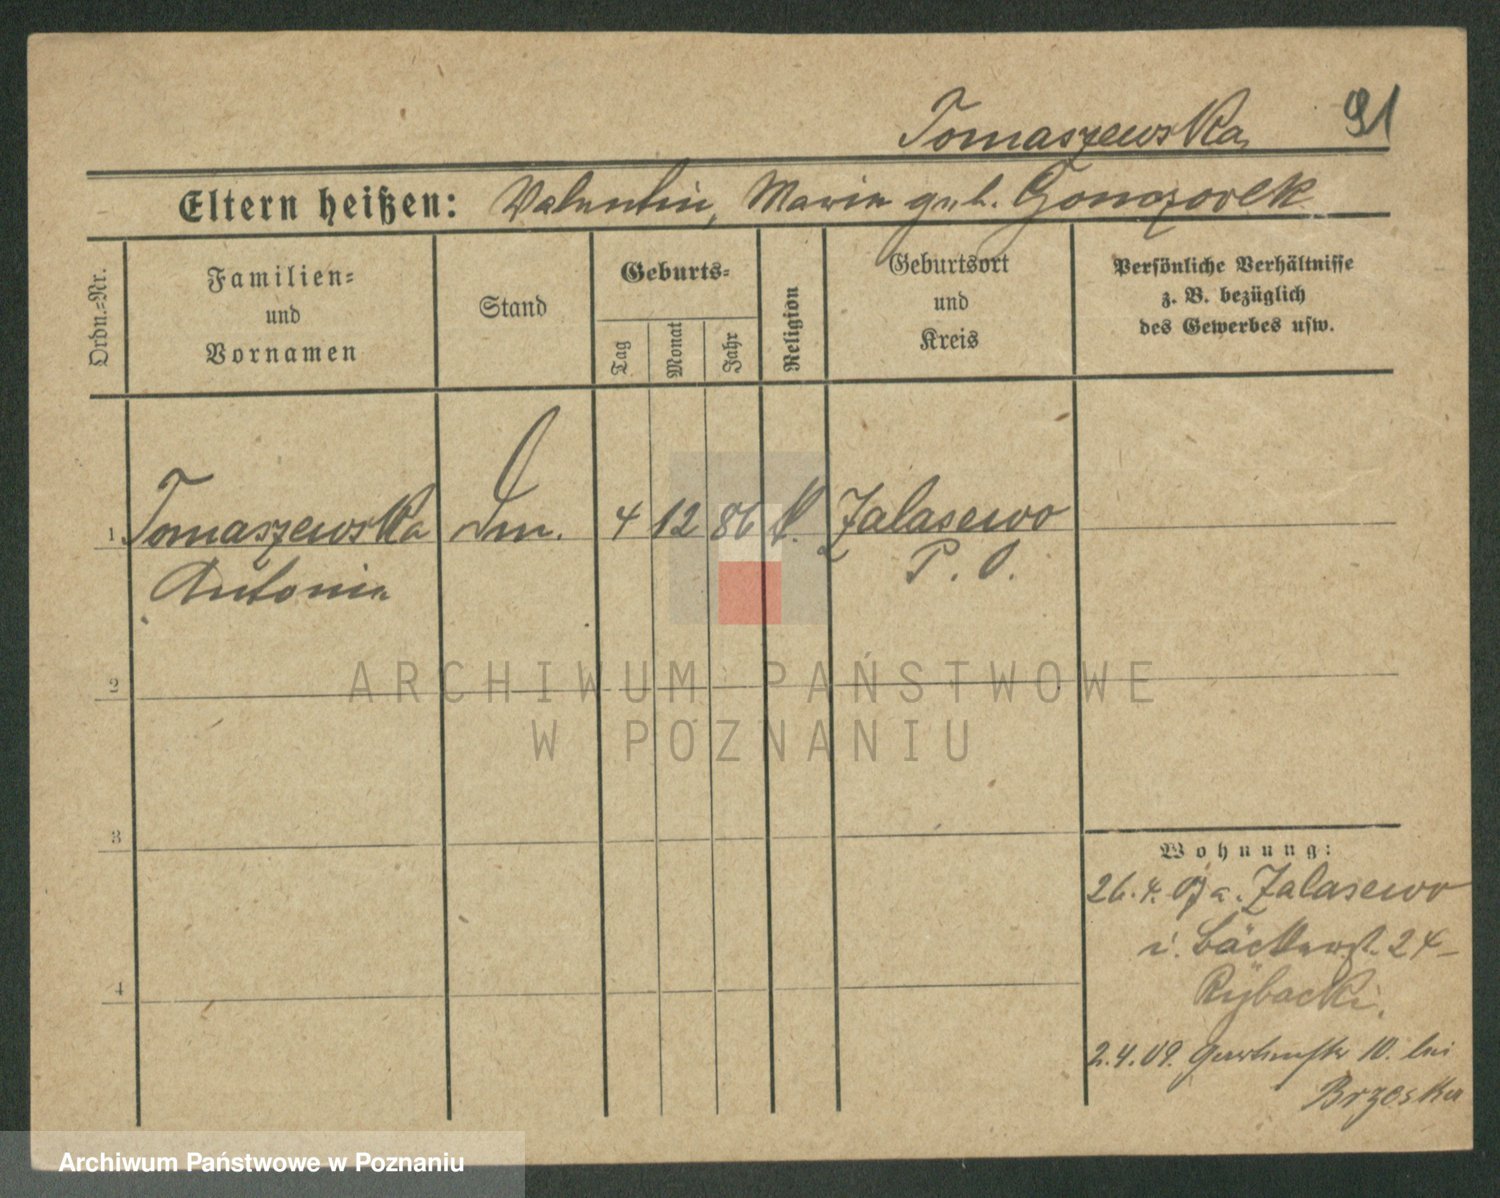 Tomaszewska
91
Eltern heißen: Valentin, Maria geb. Gonczorek
Ordn.=Nr.
Familien=
und
Vornamen
Stand
Geburts=
Tag
Monat
Jahr
Religion
Geburtsort
und
Kreis
Persönliche Verhältnisse
z. B. bezüglich
des Gewerbes usw.
1 Tomaszewska 4 12 86 k. Zalasewo
Antonie P. O.
2
ARCHIWUM PAŃSTWOWE
W POZNANIU
3
Wohnung:
26.4. 07 a. Zalasewo
i. Bäckerst. 24
Rybacki.
4
2.4.09. Gartenstr 10. bei
Brzeska
Archiwum Państwowe w Poznaniu